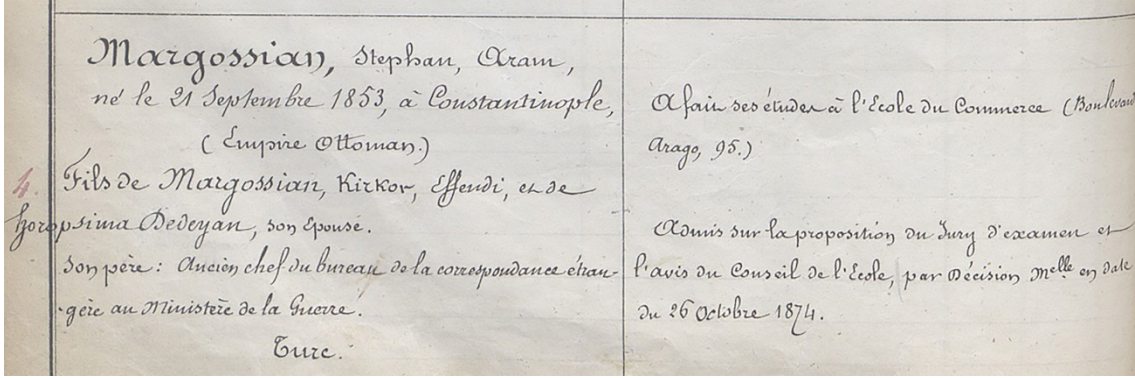 Margossian, Stephan, Aram,
né le 21 Septembre 1853, à Constantinople,
(Empire Ottoman.)
4.
Fils de Margossian, Kirkor, Effendi, et de
horopsima Dedeyan, son Epouse.
Son père: Ancien chef du bureau de la correspondance étran-
gère au Ministère de la Guerre.
Turc.
A fait ses études à l'Ecole du Commerce (Boulevard
Arago, 95.)
Admis sur la proposition du Jury d'examen et
l'avis du Conseil de l'Ecole, par Décision Melle en date
du 26 Octobre 1874.